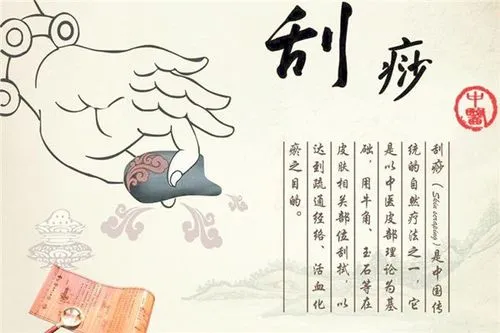 刮痧
中醫
刮痧（Skin scraping）是中国传
统的自然疗法之一，它
是以中医皮部理论为基
础，用牛角、玉石等在
皮肤相关部位刮拭，以
达到疏通经络、活血化
瘀之目的。